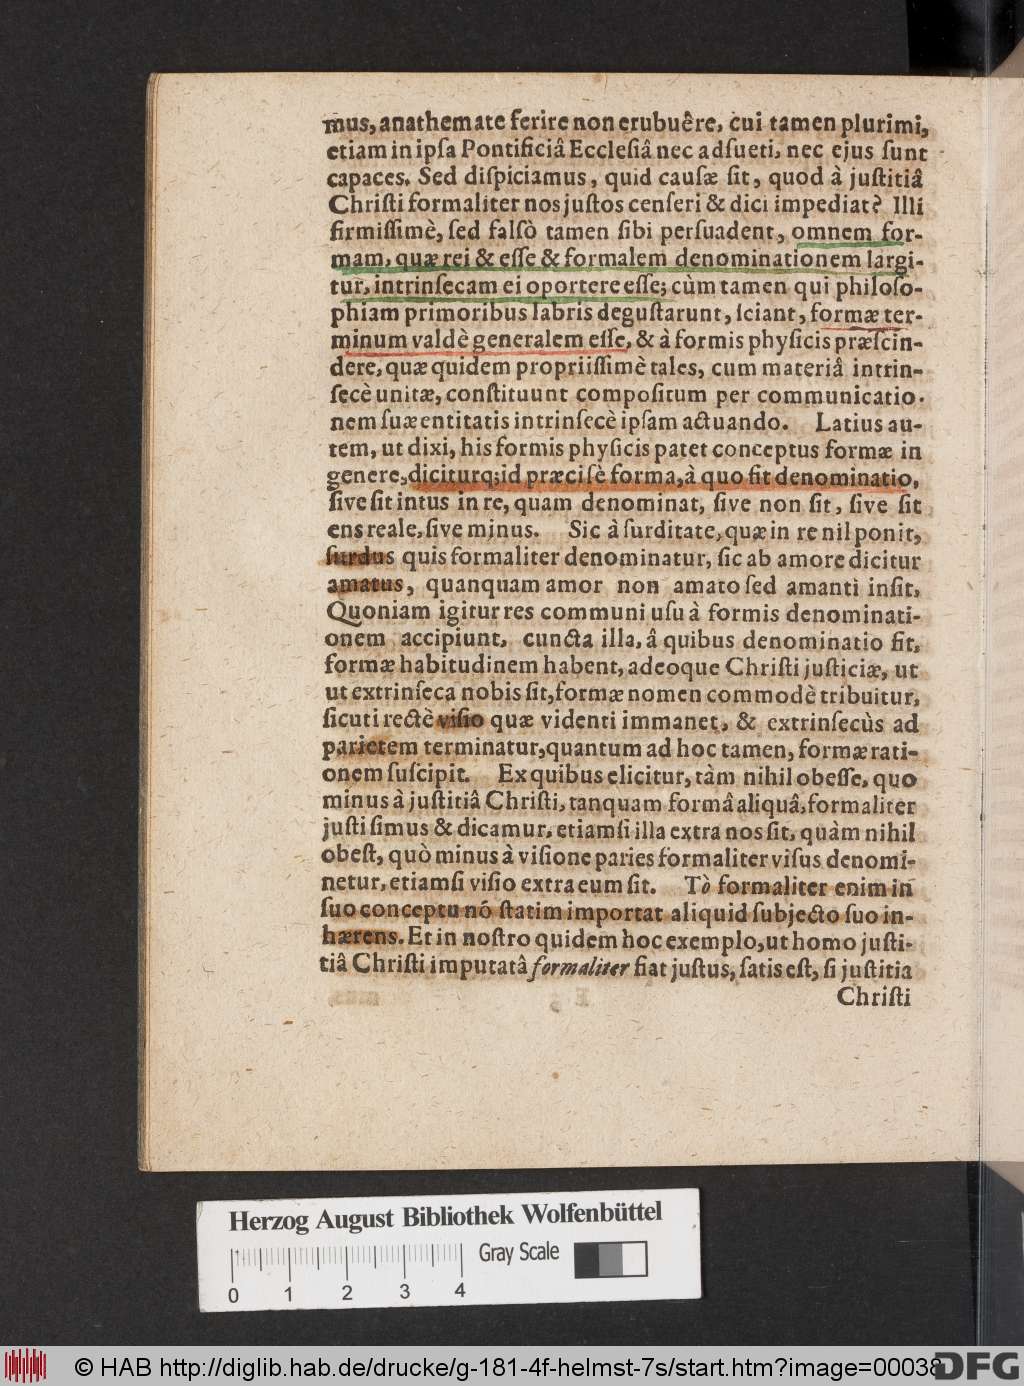 mus, anathemate ferire non erubuêre, cui tamen plurimi,
etiam in ipſa Pontificiâ Eccleſiâ nec adſueti, nec ejus ſunt
capaces. Sed diſpiciamus, quid cauſæ ſit, quod à juſtitiâ
Chriſti formaliter nos juſtos cenſeri & dici impediat? Illi
firmiſſimè, ſed falſò tamen ſibi perſuadent, omnem for-
mam, quæ rei & eſſe & formalem denominationem largi-
tur, intrinſecam ei oportere eſſe; cùm tamen qui philoſo-
phiam primoribus labris deguſtarunt, ſciant, formæ ter-
minum valdè generalem eſſe, & à formis phyſicis præſcin-
dere, quæ quidem propriiſſimè tales, cum materiâ intrin-
ſecè unitæ, conſtituunt compoſitum per communicatio-
nem ſuæ entitatis intrinſecè ipſam actuando. Latius au-
tem, ut dixi, his formis phyſicis patet conceptus formæ in
genere, diciturq; id præciſè forma, à quo fit denominatio,
ſive ſit intus in re, quam denominat, ſive non ſit, ſive ſit
ens reale, ſive minus. Sic à ſurditate, quæ in re nil ponit,
ſurdus quis formaliter denominatur, ſic ab amore dicitur
amatus, quanquam amor non amato ſed amanti inſit,
Quoniam igitur res communi uſu à formis denominati-
onem accipiunt, cuncta illa, â quibus denominatio fit,
formæ habitudinem habent, adeoque Chriſti juſticiæ, ut
ut extrinſeca nobis ſit, formæ nomen commodè tribuitur,
ſicuti rectè viſio quæ videnti immanet, & extrinſecùs ad
parietem terminatur, quantum ad hoc tamen, formæ rati-
onem ſuſcipit. Ex quibus elicitur, tàm nihil obeſſe, quo
minus à juſtitiâ Chriſti, tanquam formâ aliquâ, formaliter
juſti ſimus & dicamur, etiamſi illa extra nos ſit, quàm nihil
obeſt, quò minus à viſione paries formaliter viſus denomi-
netur, etiamſi viſio extra eum ſit. Tò formaliter enim in
ſuo conceptu nó ſtatim importat aliquid ſubjecto ſuo in-
hærens. Et in noſtro quidem hoc exemplo, ut homo juſti-
tiâ Chriſti imputatâ formaliter fiat juſtus, ſatis eſt, ſi juſtitia
Chriſti
Herzog August Bibliothek Wolfenbüttel
Gray Scale
0 1 2 3 4
© HAB http://diglib.hab.de/drucke/g-181-4f-helmst-7s/start.htm?image=00038
DFG